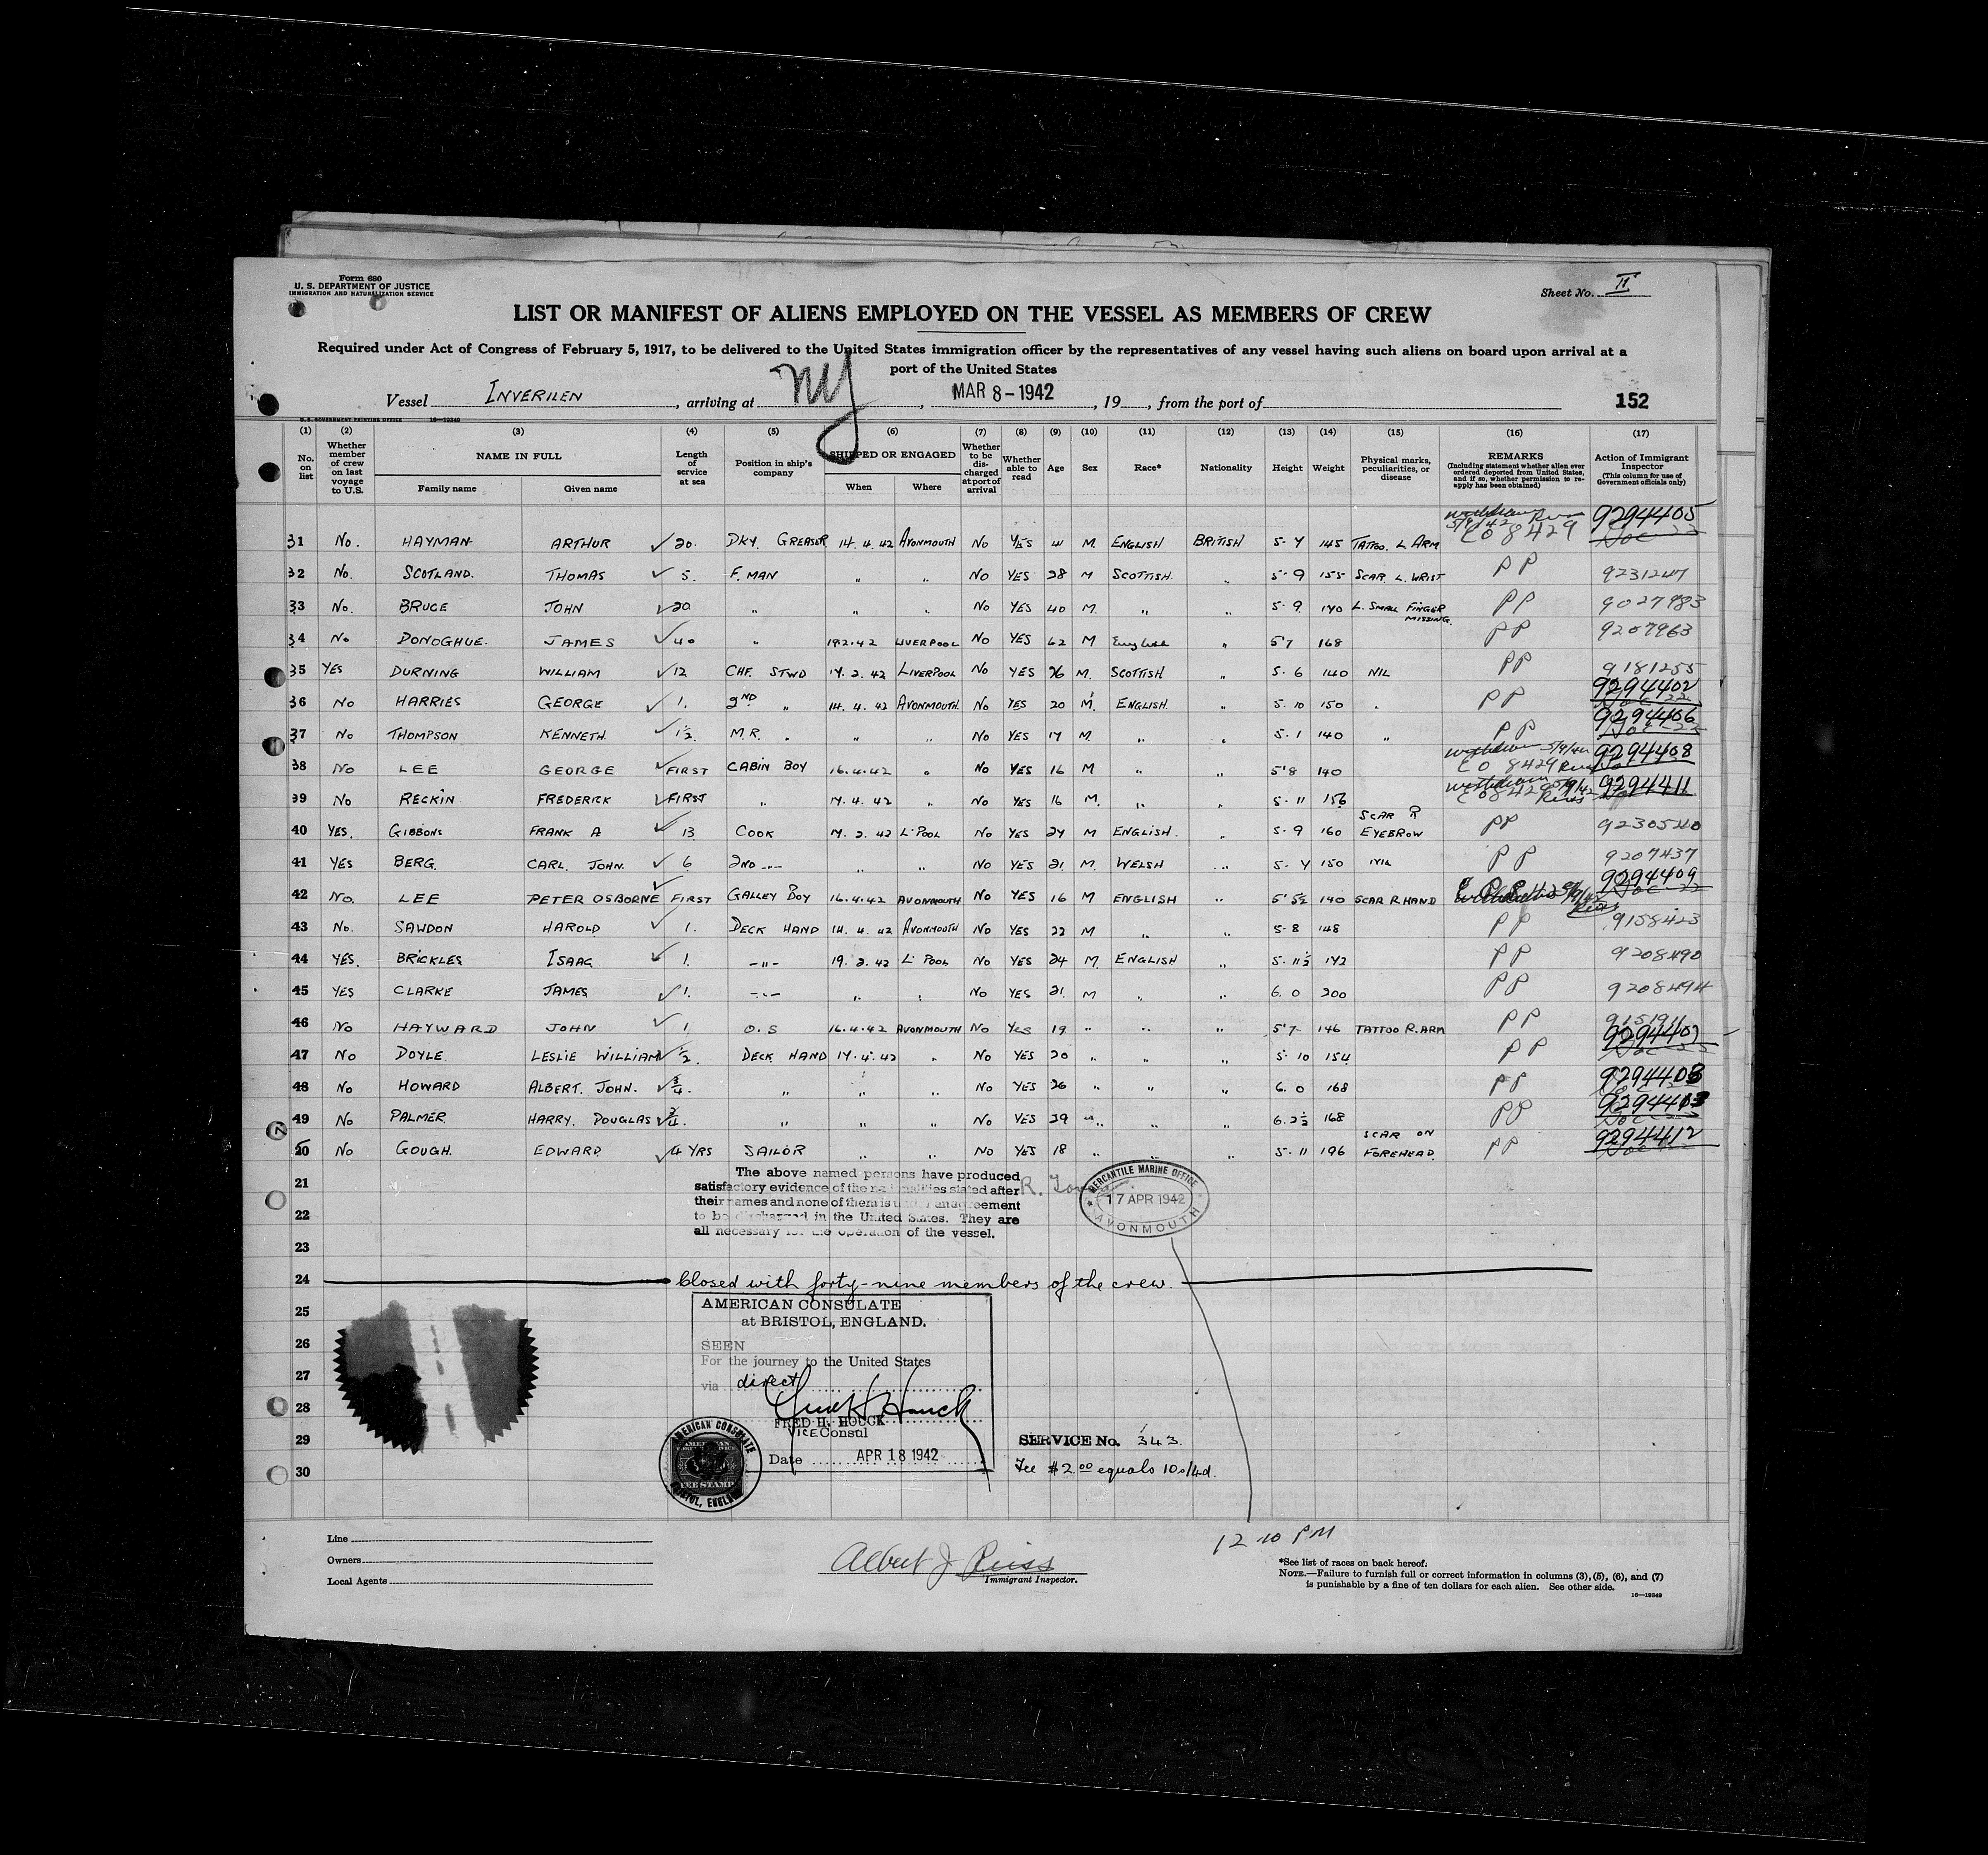 Form 680
U. S. DEPARTMENT OF JUSTICE
IMMIGRATION AND NATURALIZATION SERVICE
Sheet No. II
LIST OR MANIFEST OF ALIENS EMPLOYED ON THE VESSEL AS MEMBERS OF CREW
Required under Act of Congress of February 5, 1917, to be delivered to the United States immigration officer by the representatives of any vessel having such aliens on board upon arrival at a
port of the United States
Vessel INVERILEN, arriving at NY, MAR 8-1942, 19, from the port of 152
U.S. GOVERNMENT PRINTING OFFICE 16-19349
(1) (2) (3) (4) (5) (6) (7) (8) (9) (10) (11) (12) (13) (14) (15) (16) (17)
No. on list
Whether member of crew on last voyage to U.S.
NAME IN FULL
Family name
Given name
Length of service at sea
Position in ship's company
SHIPPED OR ENGAGED
When
Where
Whether to be discharged at port of arrival
Whether able to read
Age
Sex
Race*
Nationality
Height
Weight
Physical marks, peculiarities, or disease
REMARKS
(Including statement whether alien ever ordered deported from United States, and if so, whether permission to reapply has been obtained)
Action of Immigrant Inspector
(This column for use of Government officials only)
31 No. HAYMAN ARTHUR 20. DKY. GREASER 14.4.42 AVONMOUTH No YES 41 M. ENGLISH BRITISH 5-4 145 TATTOO. L ARM CO 8429 9294405
32 No. SCOTLAND. THOMAS 5. F. MAN " " No YES 28 M SCOTTISH. " 5-9 155 SCAR. L. WRIST PP 9231247
33 No. BRUCE JOHN 20 " " " No YES 40 M. " " 5-9 140 L. SMALL FINGER MISSING. PP 9027983
34 No DONOGHUE. JAMES 40 " 19.2.42 LIVERPOOL No YES 62 M English " 5'7 168 PP 9207963
35 YES DURNING WILLIAM 12 CHF. STWD 17.2.42 LIVERPOOL No YES 26 M. SCOTTISH " 5-6 140 NIL PP 9181255
36 No HARRIES GEORGE 1. 2ND " 14.4.42 AVONMOUTH. No YES 20 M. ENGLISH. " 5-10 150 " PP 9294402
37 No THOMPSON KENNETH. 1½ M.R. " " " No YES 17 M. " " 5-1 140 " PP 9294406
38 No LEE GEORGE FIRST CABIN BOY 16.4.42 " No YES 16 M " " 5'8 140 CO 8429 9294408
39 No RECKIN FREDERICK FIRST " 17.4.42 " No YES 16 M. " " 5-11 156 9294411
40 YES. GIBBONS FRANK A 13 COOK 17.2.42 L'POOL No YES 24 M ENGLISH. " 5-9 160 SCAR R EYEBROW PP 9230520
41 YES BERG. CARL. JOHN. 6 2ND -"- " " No YES 21. M. WELSH " 5-4 150 NIL PP 9207437
42 No. LEE PETER OSBORNE FIRST GALLEY BOY 16.4.42 AVONMOUTH No YES 16 M ENGLISH " 5'5½ 140 SCAR R HAND 9294409
43 No. SAWDON HAROLD 1. DECK HAND 14.4.42 AVONMOUTH No YES 22 M " " 5-8 148 PP 9158423
44 YES. BRICKLES ISAAC 1. -"- 19.2.42 L'POOL No YES 24 M. ENGLISH " 5.11½ 142 PP 9208490
45 YES CLARKE JAMES 1. -"- " " No YES 21. M " " 6.0 200 PP 9208494
46 No HAYWARD JOHN 1 O.S 16.4.42 AVONMOUTH No Yes 19 " " " 5'7 146 TATTOO R.ARM PP
47 No DOYLE. LESLIE WILLIAM ½. DECK HAND 17.4.42 " No YES 20 " " " 5-10 154 PP
48 No HOWARD ALBERT. JOHN. ¾. " " " No YES 26 " " " 6.0 168 PP
49 No PALMER. HARRY. DOUGLAS ¾. " " " No YES 29 " " " 6.2½ 168 PP
50 No GOUGH. EDWARD 4 YRS SAILOR " " No YES 18 " " " 5-11 196 SCAR ON FOREHEAD. PP 9294412
21
22
23
The above named persons have produced
satisfactory evidence of the nationalities stated after
their names and none of them is under an agreement
to be discharged in the United States. They are
all necessary for the operation of the vessel.
MERCANTILE MARINE OFFICE
17 APR 1942
AVONMOUTH
24 Closed with forty-nine members of the crew.
25
26
27
28
29
30
AMERICAN CONSULATE
at BRISTOL, ENGLAND.
SEEN
For the journey to the United States
via direct
Fred H. Houck
FRED H. HOUCK
VICE Consul
Date APR 18 1942
AMERICAN CONSULATE
FEE STAMP
BRISTOL, ENGLAND
SERVICE No. 343.
Fee $2.00 equals 10s/4d.
12 10 PM
Line
Owners
Local Agents
Albert J Reiss
Immigrant Inspector.
*See list of races on back hereof.
NOTE.—Failure to furnish full or correct information in columns (3), (5), (6), and (7)
is punishable by a fine of ten dollars for each alien. See other side.
16-19349